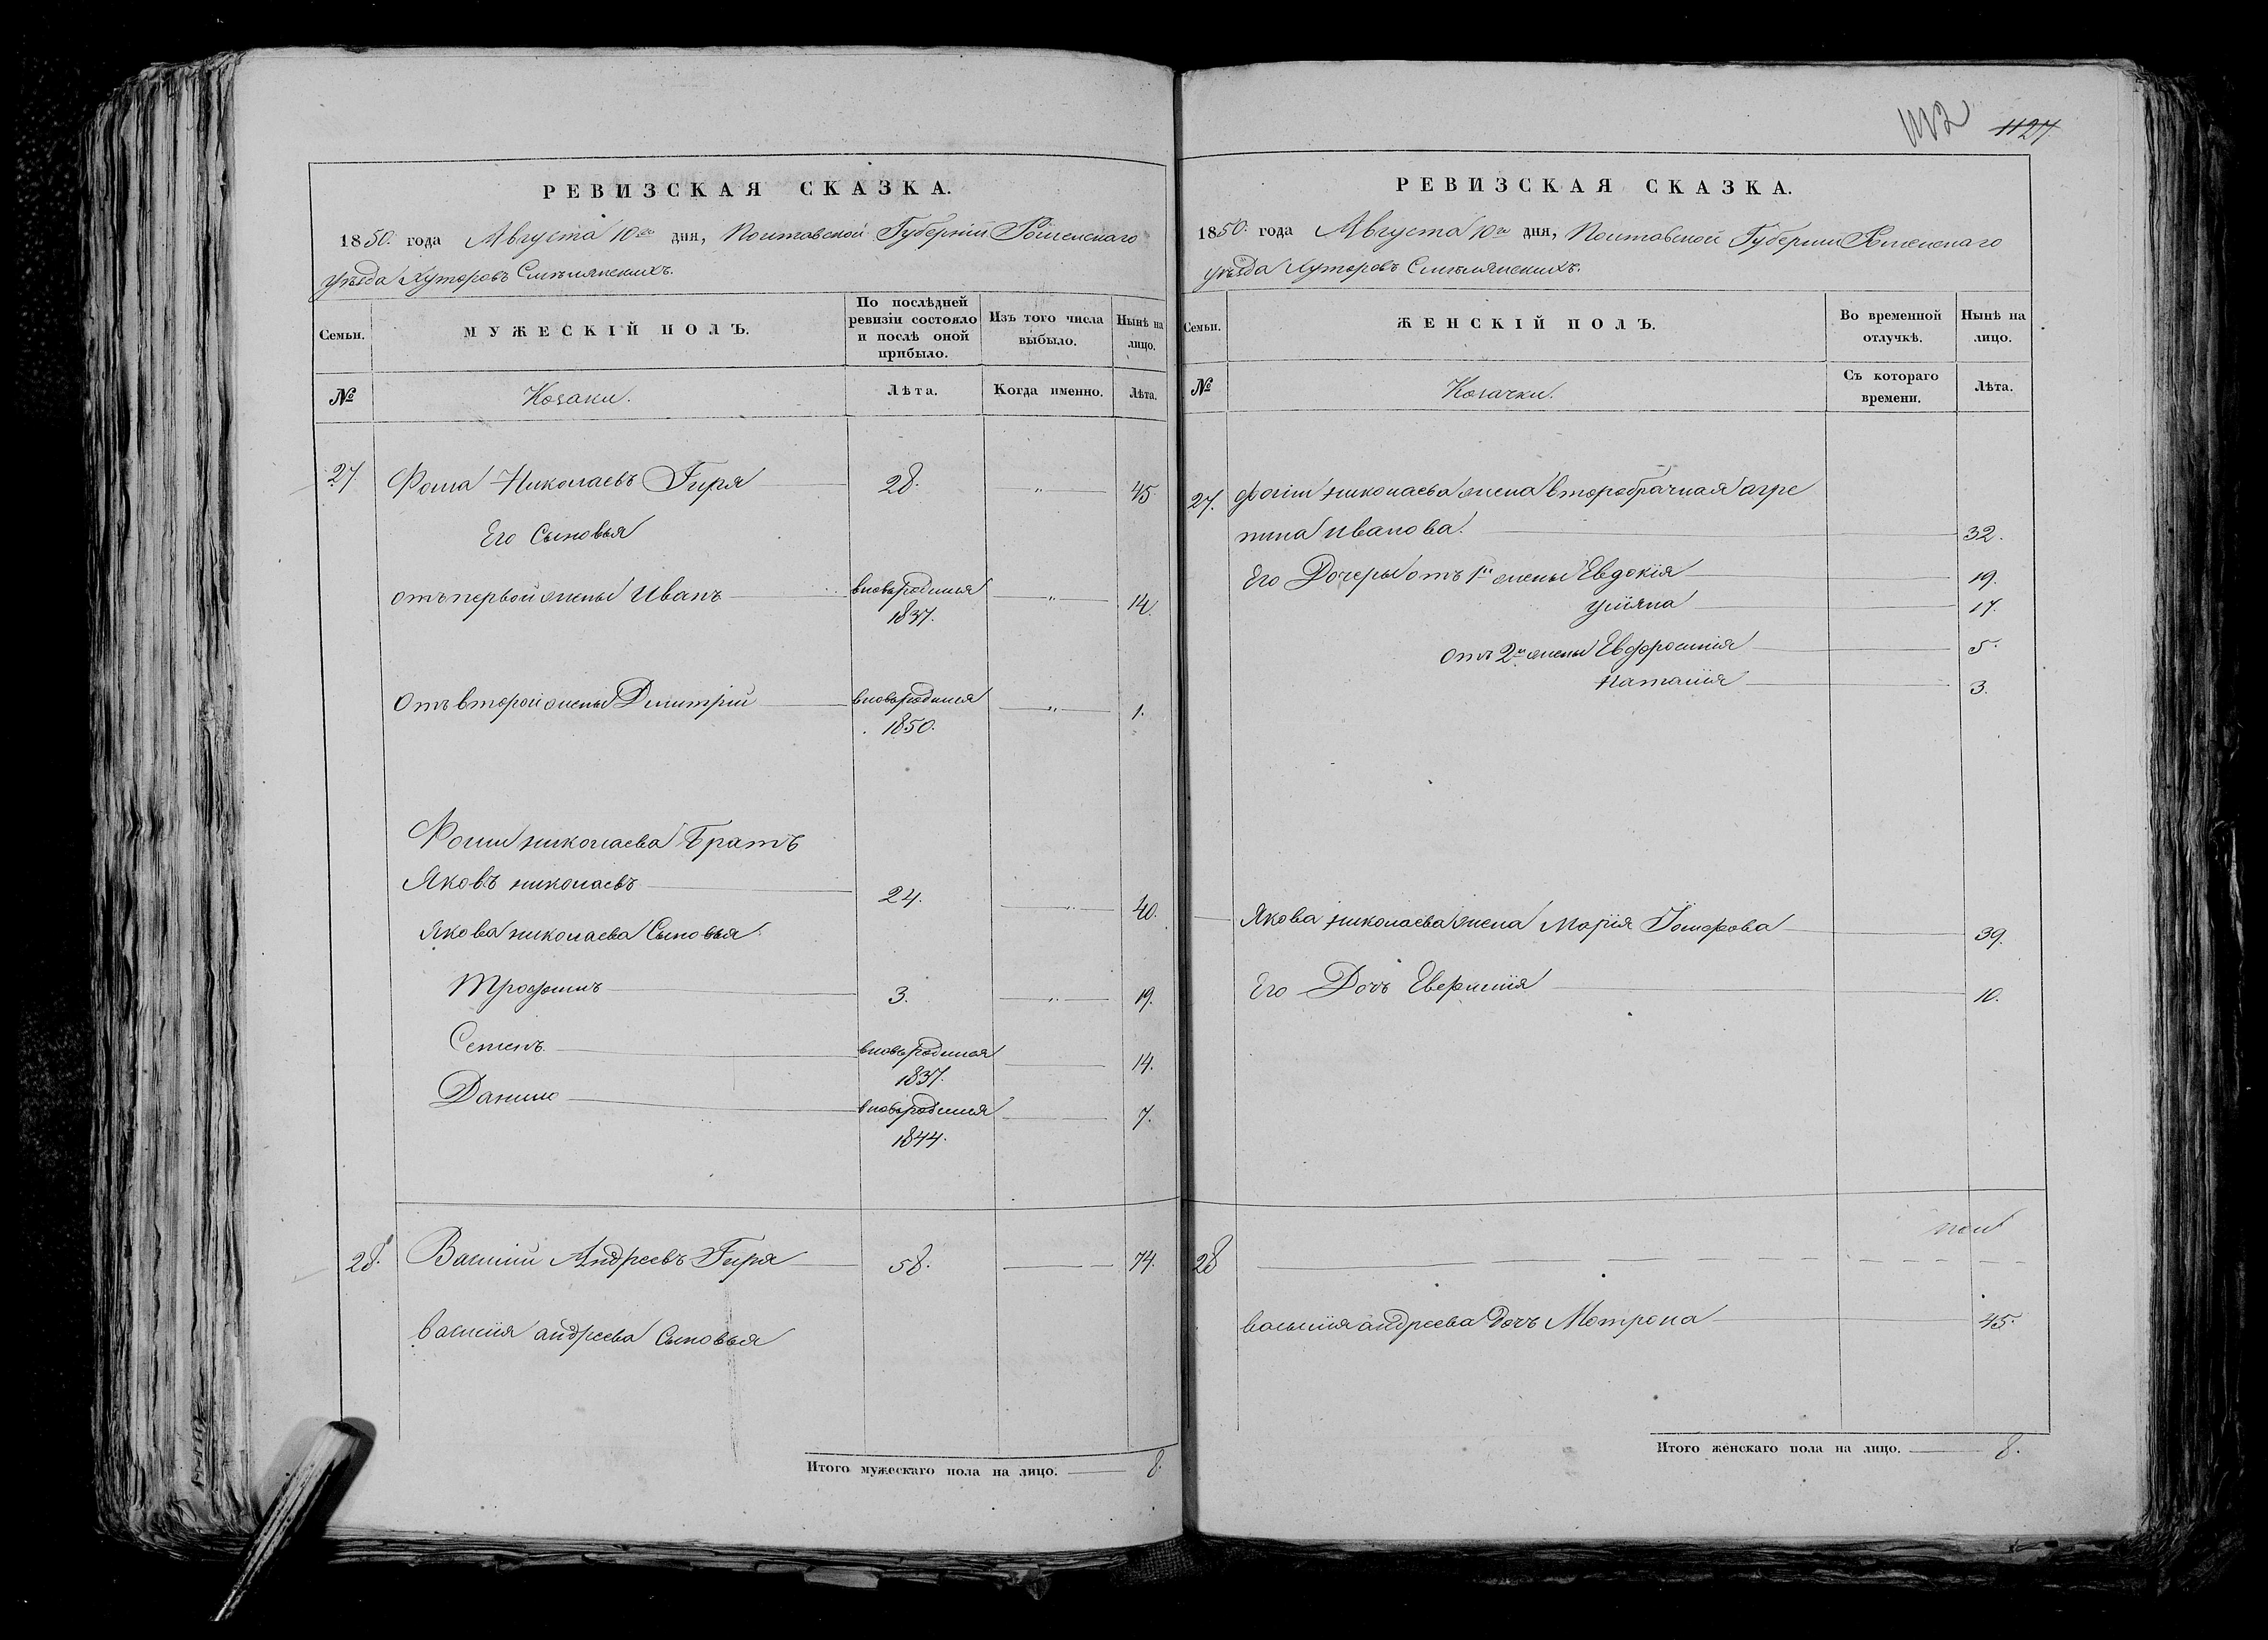 1127
РЕВИЗСКАЯ СКАЗКА.
1850. года Августа 10го дня, Полтавской Губерніи Роменскаго
уѣзда Хуторовъ Смѣлянскихъ.
Семьи.
МУЖЕСКІЙ ПОЛЪ.
По послѣдней ревизіи состояло и послѣ оной прибыло.
Изъ того числа выбыло.
Нынѣ на лицо.
№
Козаки.
Лѣта.
Когда именно.
Лѣта.
27. Фома Николаевъ Гиря 28. " 45.
Его Сыновья
отъ первой жены Иванъ вновьродился 1837. " 14.
Отъ второй жены Димитрій вновьродился 1850. " 1.
Фомы николаева Братъ
Яковъ николаевъ 24. " 40.
Якова николаева Сыновья
Трофимъ 3. " 19.
Семенъ вновьродился 1837. 14.
Данило вновьродился 1844. 7.
28. Василий Андреевъ Гиря 58. 74.
василия андреева Сыновья
Итого мужескаго пола на лицо. 8.
РЕВИЗСКАЯ СКАЗКА.
1850. года Августа 10го дня, Полтавской Губерніи Роменскаго
уѣзда Хуторовъ Смѣлянскихъ.
Семьи.
ЖЕНСКІЙ ПОЛЪ.
Во временной отлучкѣ.
Нынѣ на лицо.
№
Козачки.
Съ котораго времени.
Лѣта.
27. Фомы николаева жена второбрачная агре
пина иванова. 32.
Его Дочеры отъ 1й жены Евдокія 19.
уліяна 17.
отъ 2й жены Евфросинія 5.
Наталія 3.
Якова николаева жена Марія 39.
Его Дочь 10.
28
василия андреева дочь Мотрона 45.
Итого женскаго пола на лицо. 8.